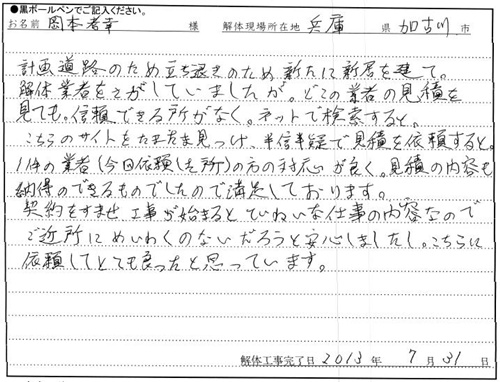 ●黒ボールペンでご記入ください。
お名前 岡本孝幸 様 解体現場所在地 兵庫 県 加古川 市
計画道路のため立ち退きのため新たに新居を建て。
解体業者をさがしていましたが。どこの業者の見積を
見ても。信頼できる所がなく。ネットで検索すると。
こちらのサイトをたまたま見つけ、半信半疑で見積を依頼すると。
1件の業者(今回依頼した所)の方の対応が良く。見積の内容も
納得のできるものでしたので満足しております。
契約をすませ工事が始まるとていねいな仕事の内容なので
ご近所にめいわくのないだろうと安心しましたし。こちらに
依頼してとても良かったと思っています。
解体工事完了日 2013 年 7 月 31 日